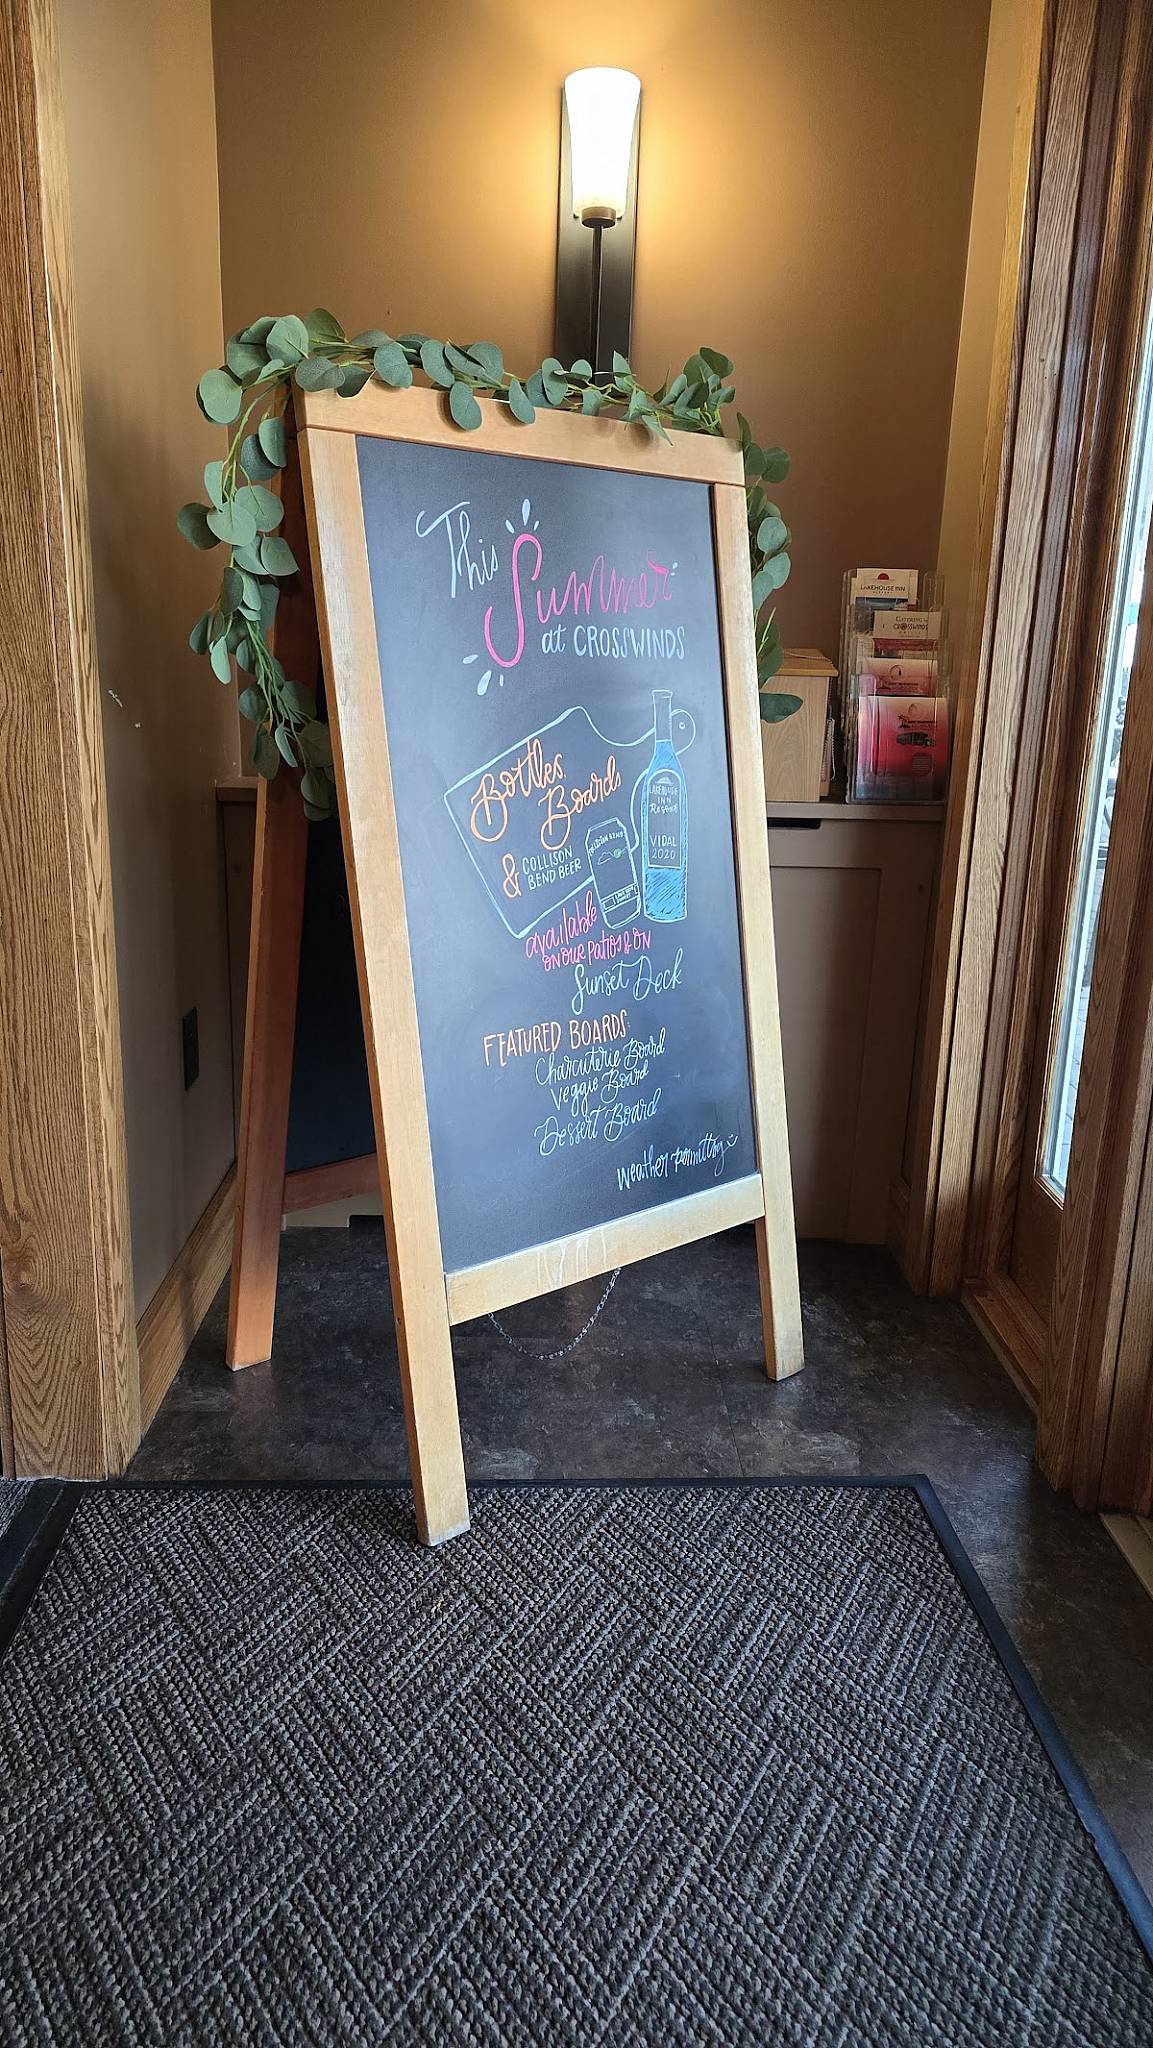 This
Summer
at CROSSWINDS
Bottles,
Boards
& COLLISON
BEND BEER
LAKEHOUSE
INN
VIDAL
2020
available
ON OUR PATIOS & ON
Sunset Deck
FEATURED BOARDS:
Charcuterie Board
Veggie Board
Dessert Board
weather permitting
LAKEHOUSE INN
CATERING by
CROSSWINDS